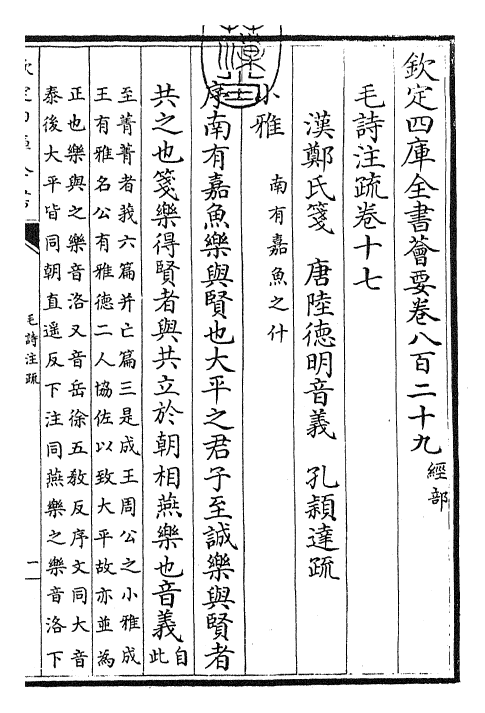 欽定四庫全書薈要卷八百二十九 經部
毛詩注疏卷十七
漢鄭氏箋 唐陸德明音義 孔穎達疏
小雅 南有嘉魚之什
序南有嘉魚樂與賢也大平之君子至誠樂與賢者
共之也箋樂得賢者與共立於朝相燕樂也音義自此
至菁菁者莪六篇并亡篇三是成王周公之小雅成
王有雅名公有雅德二人協佐以致大平故亦並為
正也樂與之樂音洛又音岳徐五敎反序文同大音
泰後大平皆同朝直遥反下注同燕樂之樂音洛下
毛詩注疏
一